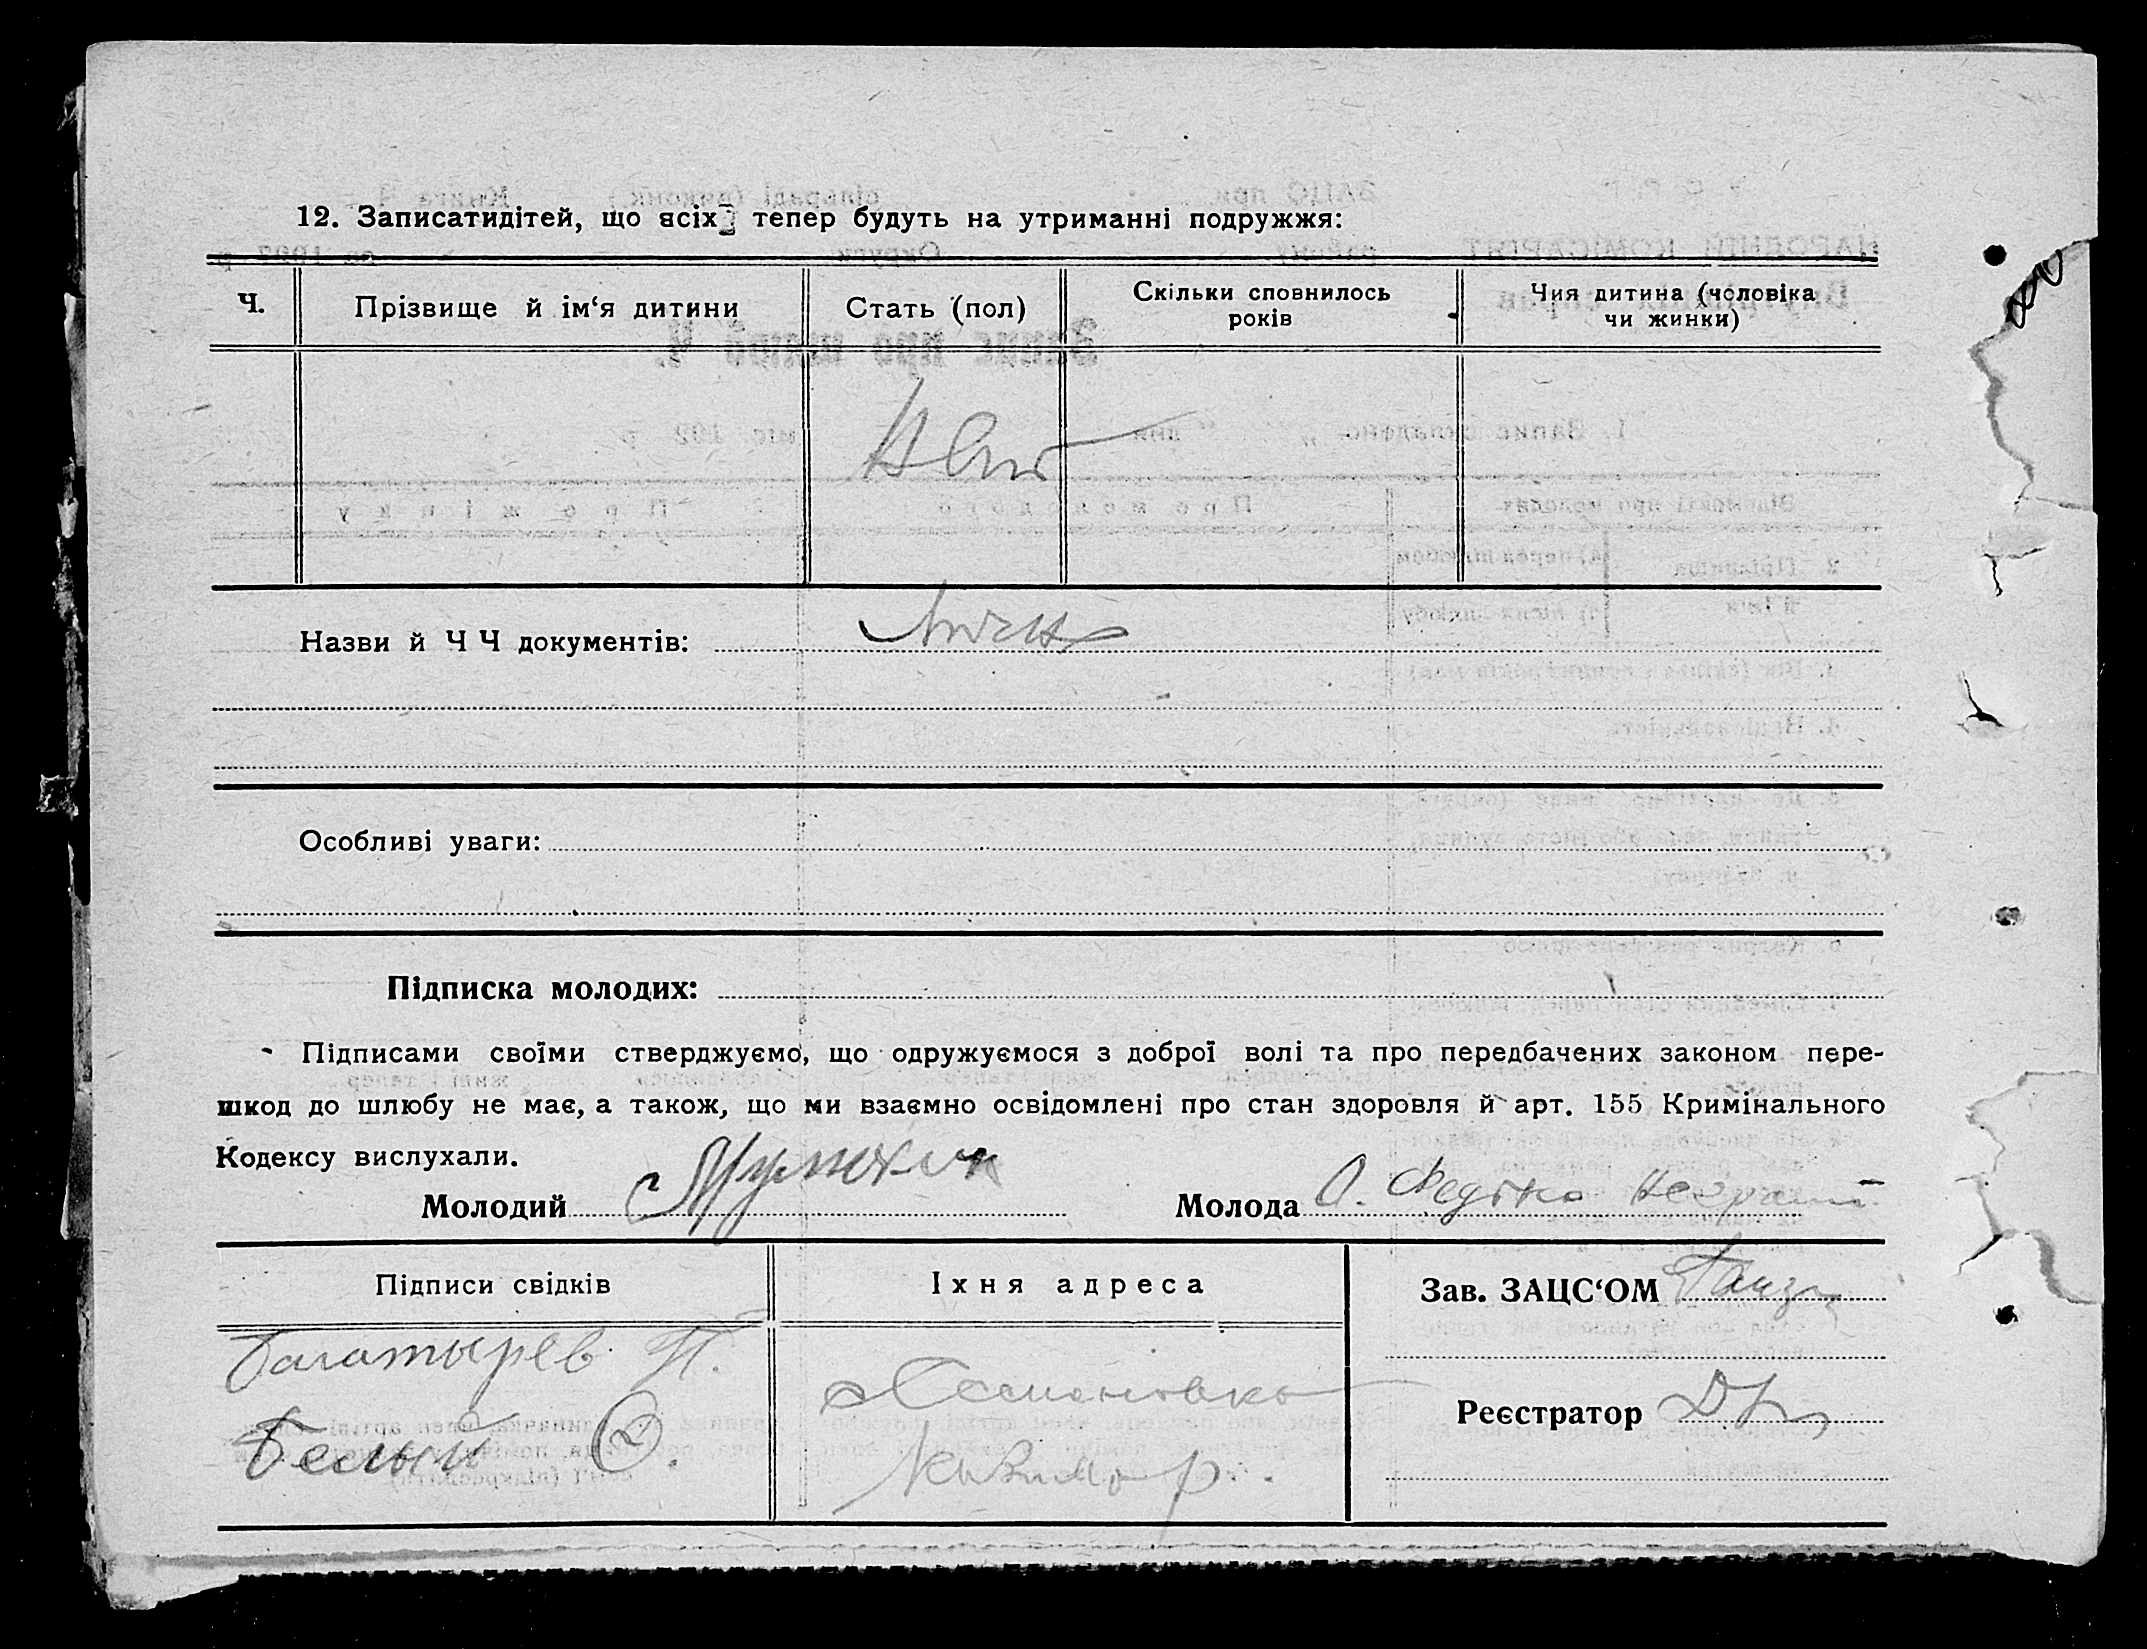 12. Записатидітей, що всіх тепер будуть на утриманні подружжя:
Ч.
Прізвище й ім‘я дитини
Стать (пол)
Скільки сповнилось
років
Чия дитина (чоловіка
чи жинки)
Назви й Ч Ч документів:
Особливі уваги:
Підписка молодих:
Підписами своїми стверджуємо, що одружуємося з доброї волі та про передбачених законом пере-
шкод до шлюбу не має, а також, що ми взаємно освідомлені про стан здоровля й арт. 155 Кримінального
Кодексу вислухали.
Молодий
Молода
Підписи свідків
Їхня адреса
Зав. ЗАЦС‘ОМ
Багатырев П.
Белый
Реєстратор